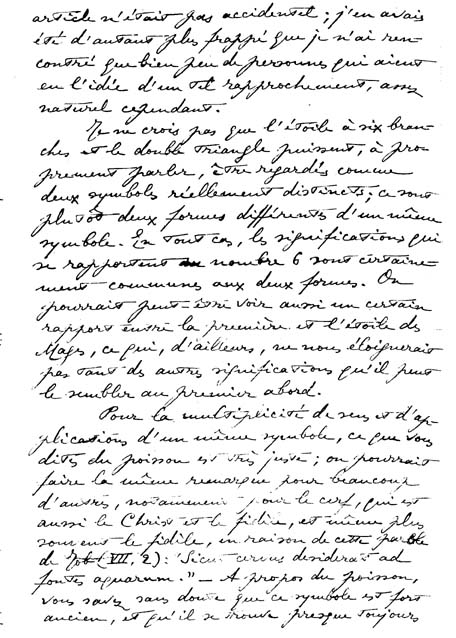 article n'était pas accidentel ; j'en avais
été d'autant plus frappé que je n'ai ren-
contré que bien peu de personnes qui aient
eu l'idée d'un tel rapprochement, assez
naturel cependant.
Je ne crois pas que l'étoile à six bran-
ches et le double triangle puissent, à pro-
prement parler, être regardés comme
deux symboles réellement distincts ; ce sont
plutôt deux formes différentes d'un même
symbole. En tout cas, les significations qui
se rapportent au nombre 6 sont certaine-
ment communes aux deux formes. On
pourrait peut-être voir aussi un certain
rapport entre la première et l'étoile des
Mages, ce qui, d'ailleurs, ne nous éloignerait
pas tant des autres significations qu'il peut
le sembler au premier abord.
Pour la multiplicité de sens et d'ap-
plications d'un même symbole, ce que vous
dites du poisson est très juste ; on pourrait
faire la même remarque pour beaucoup
d'autres, notamment pour le cerf, qui est
aussi le Christ et le fidèle, et même plus
souvent le fidèle, en raison de cette parole
de Job (VII, 2) : "Sicut cervus desiderat ad
fontes aquarum." — A propos du poisson,
vous savez sans doute que ce symbole est fort
ancien, et qu'il se trouve presque toujours